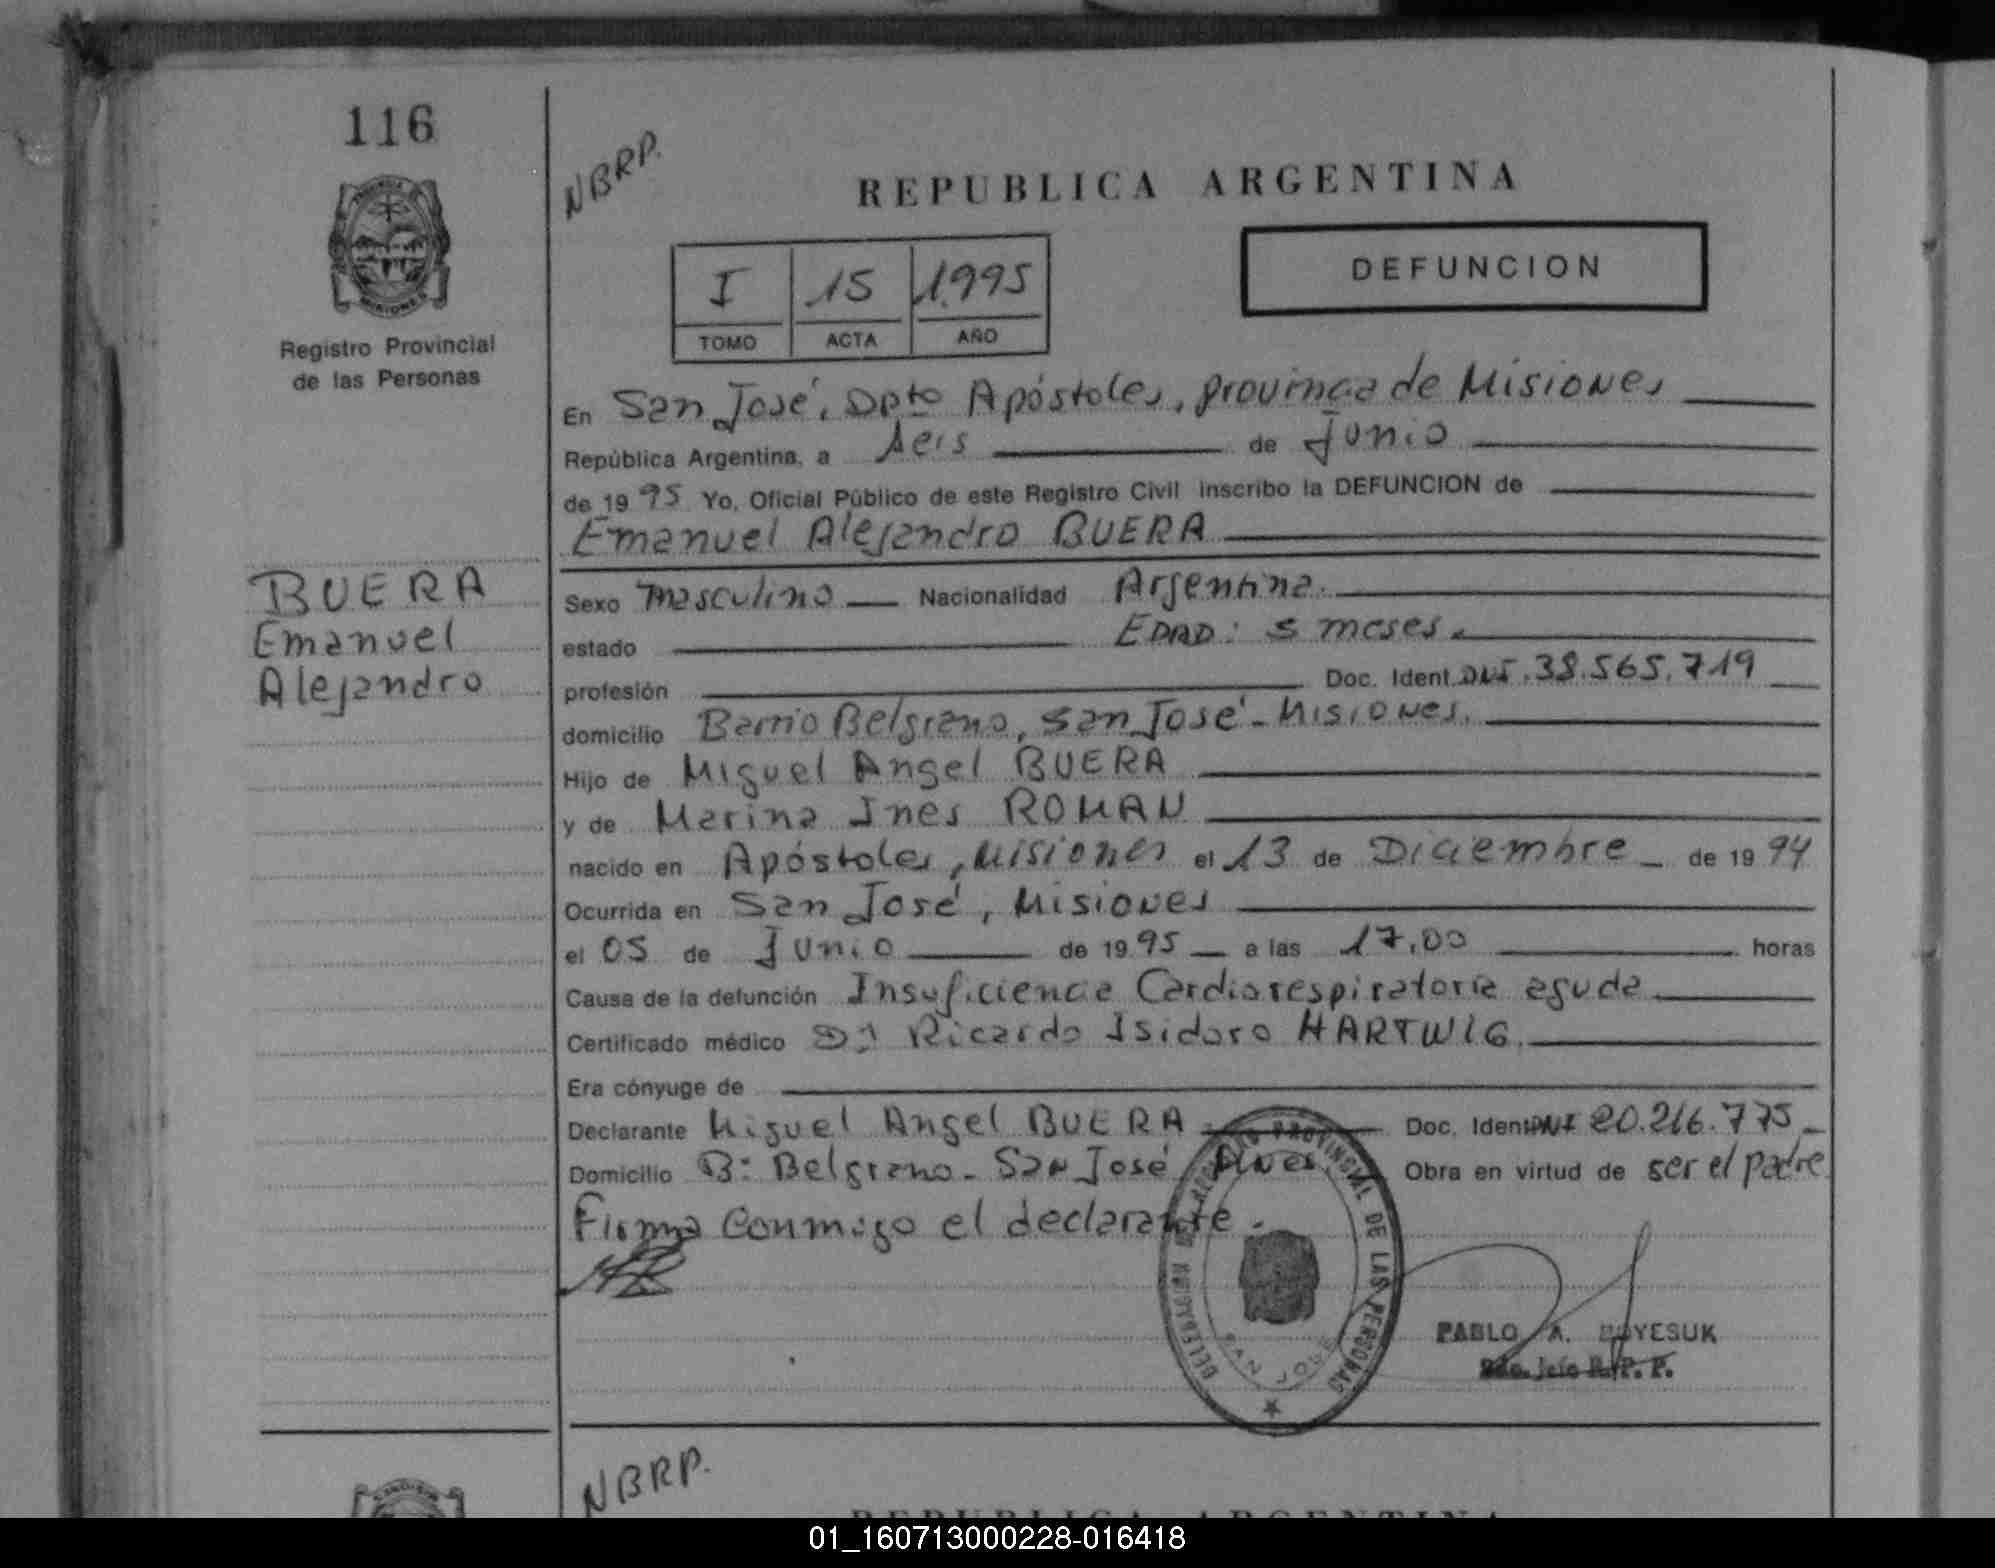 116
NBRP.
REPUBLICA ARGENTINA
DEFUNCION
I 15 1.995
TOMO ACTA AÑO
Registro Provincial
de las Personas
En San José, Dpto Apóstoles, provincia de Misiones
República Argentina, a seis de junio
de 1995 Yo, Oficial Público de este Registro Civil inscribo la DEFUNCION de
Emanuel Alejandro BUERA
BUERA
Emanuel
Alejandro
Sexo masculino Nacionalidad Argentina.
estado EDAD: 5 meses.
profesión Doc. Ident. DNI. 38.565.719
domicilio Barrio Belgrano, San José - Misiones.
Hijo de Miguel Angel BUERA
y de Marina Ines ROMAN
nacido en Apóstoles, Misiones el 13 de Diciembre de 1994
Ocurrida en San José, Misiones
el 05 de Junio de 1995 a las 17,00 horas
Causa de la defunción Insuficiencia Cardiorespiratoria aguda
Certificado médico Dr. Ricardo Isidoro HARTWIG.
Era cónyuge de
Declarante Miguel Angel BUERA Doc. Ident DNI 20.216.775
Domicilio B: Belgrano - San José Mnes. Obra en virtud de ser el padre
Firma conmigo el declarante.
DELEGACION REGISTRO PROVINCIAL DE LAS PERSONAS
SAN JOSE
PABLO A. BOYESUK
Jefe R. P. P.
NBRP.
REPUBLICA ARGENTINA
01_160713000228-016418